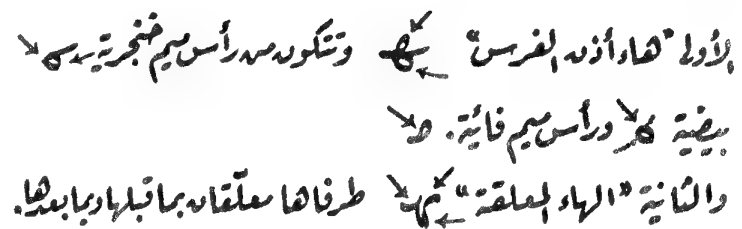 الأولى "هاء أذن الفرس" يهـ وتتكون من رأس ميم خنجرية
بيضية ورأس ميم فائية.
والثانية "الهاء المعلقة" طرفاها معلّقان بما قبلها وبما بعدها.